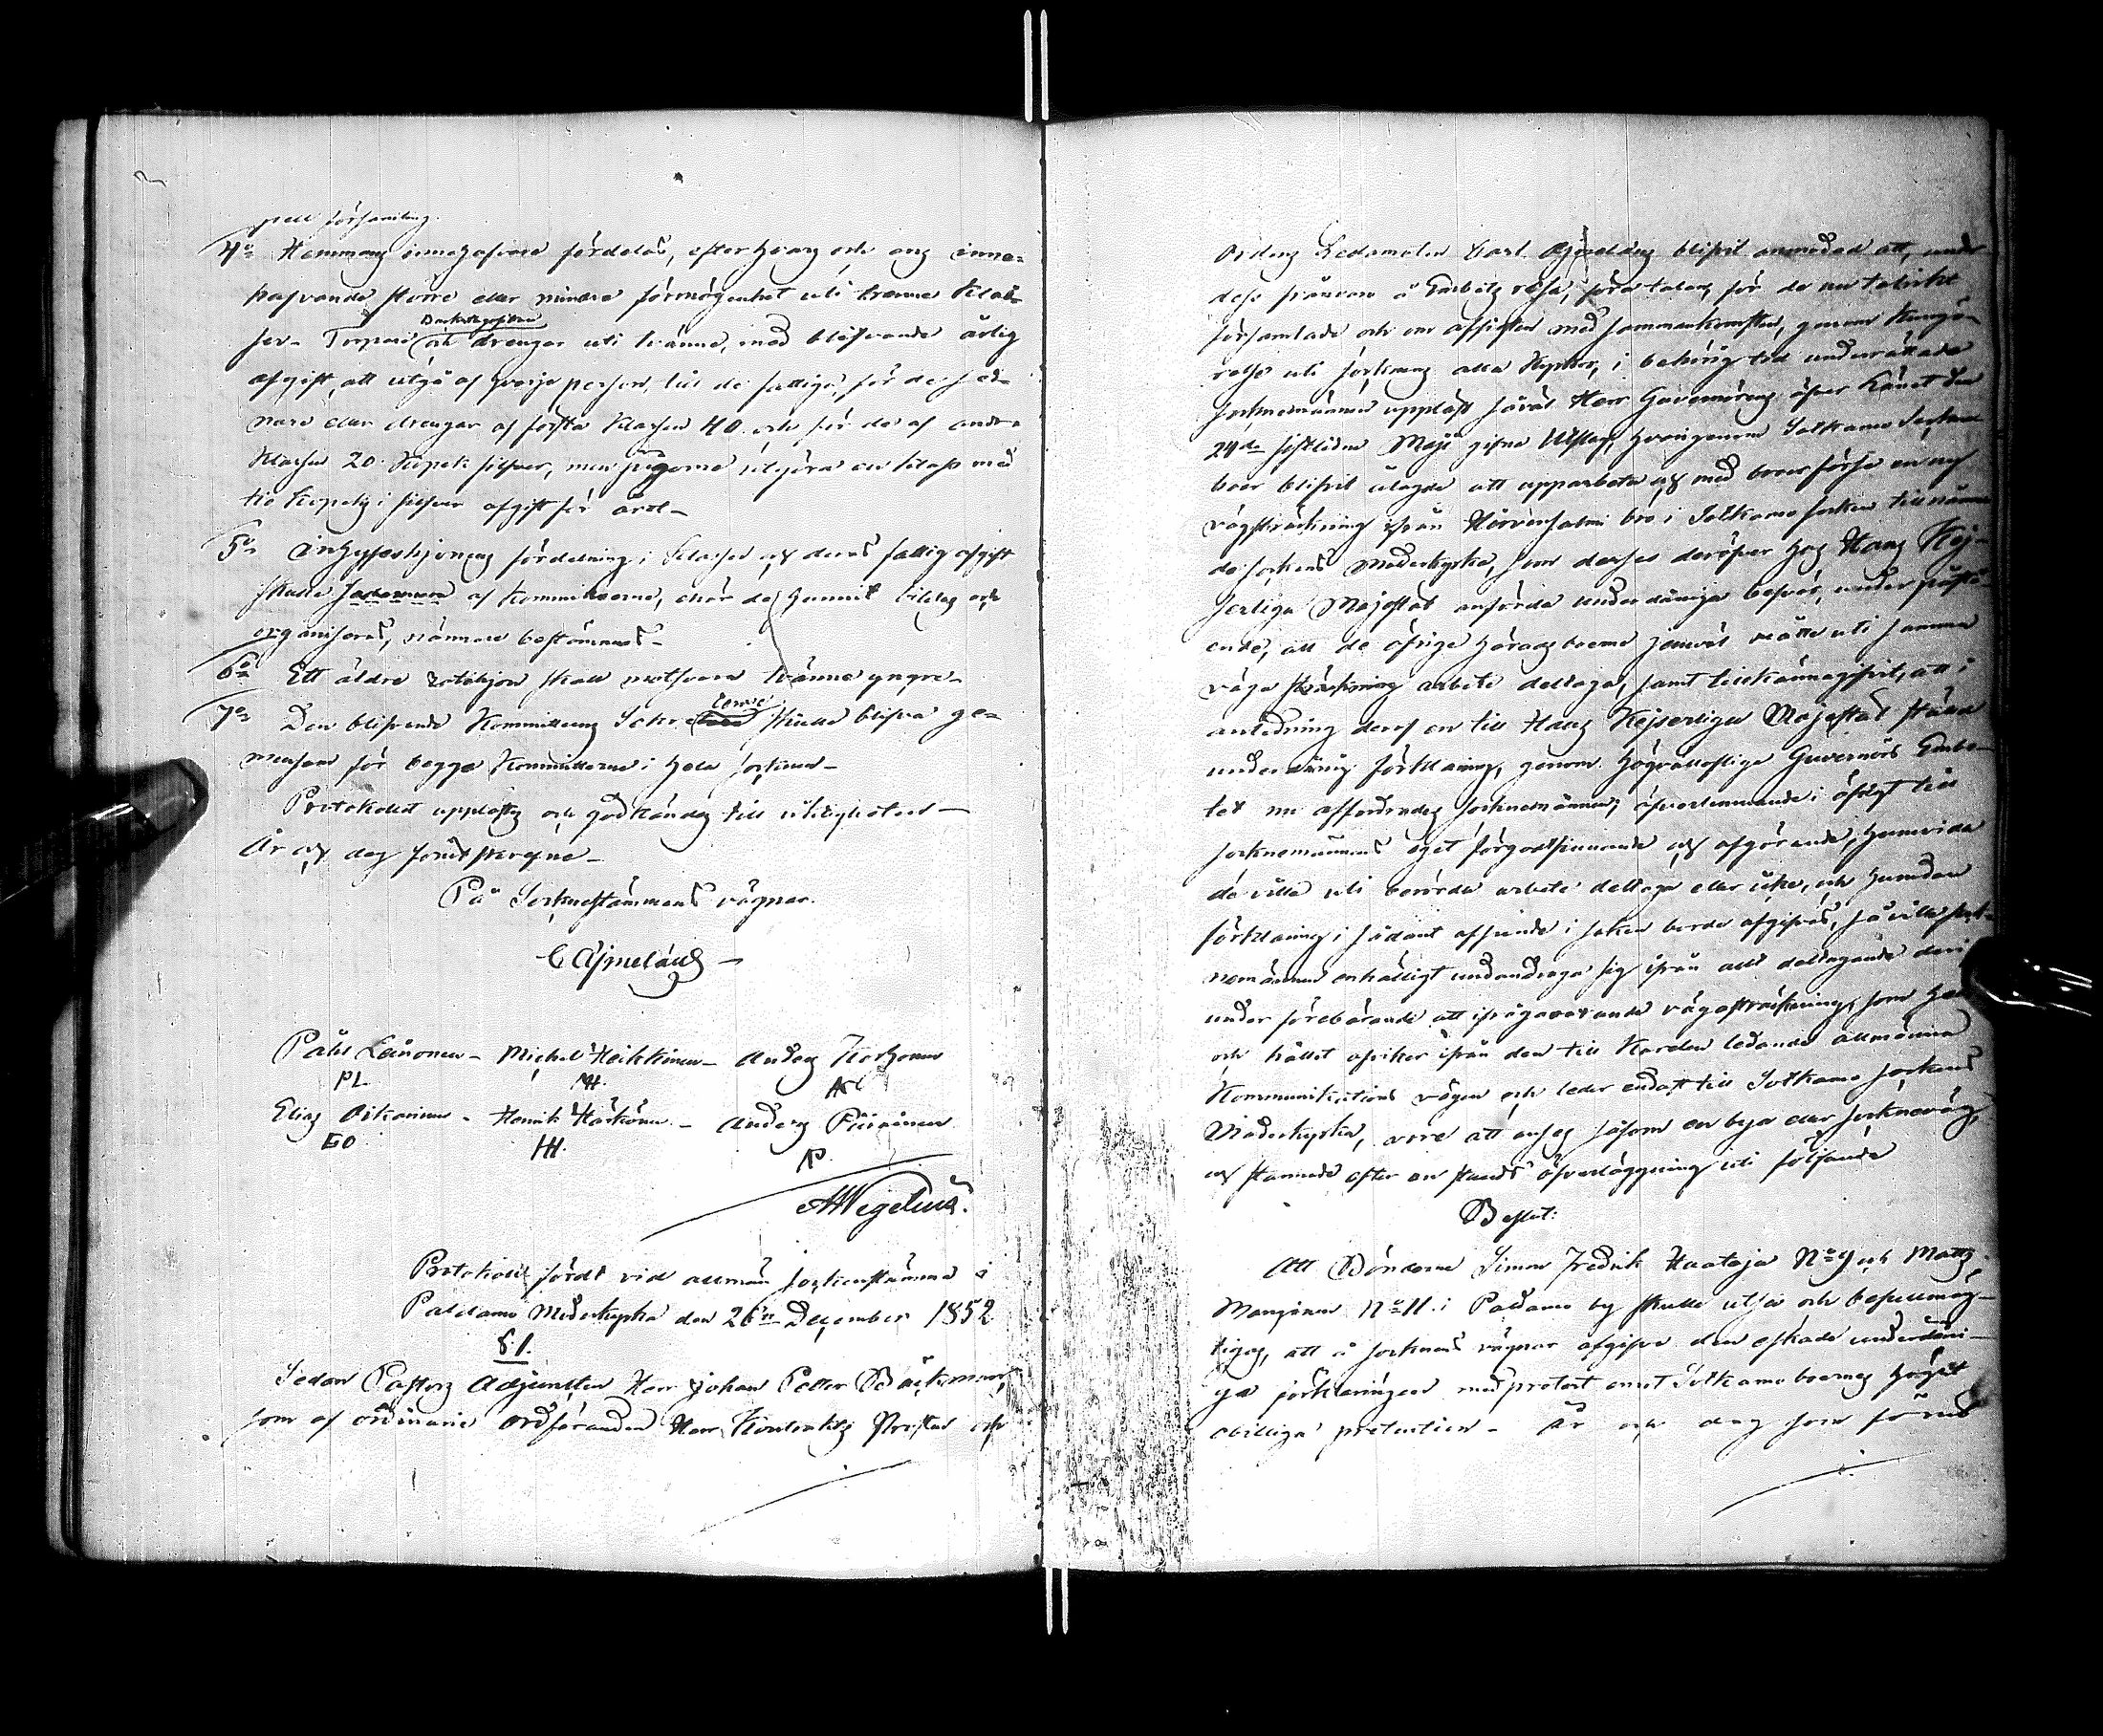 församling.
4o Hemmans innehafvare fördelas, efter hvars och ens inne-
hafvande större eller mindre förmögenhet uti trenne Klas-
ser. Torpare och drengar uti tvänne, med blifvande årlig
afgift, att utgå af hvarje person, till de fattiga, för de sed-
nare eller drengar af första Klassen 40. och för de af andra
Klassen 20. Kopek silfver, men pigorne utgöra en klass med
tio kopeks i silfver afgift för året.
5o Inhyseshjonens fördelning i Klasser och deras fattig afgift
skulle af Kommitteerne, när de hunnit bildas och
organiseras, närmare bestämmas.
6o Ett äldre rotehjon skall motsvara tvänne yngre.
7o Den blifvande Kommitteens skulle blifva ge-
mensam för begge Kommitteerne i hela socknen.
Protokollet upplästes och godkändes till riktigheten.
År och dag som förut skrefne.
På Sockenstämmans vägnar.
C Ajmelæus
Påhl Leinonen - Michel Heikkinen - Anders Korhonen
PL MH. AK
Elias Oikarinen - Henrik Härkönen - Anders Piirainen
EO HH. AP.
AWegelius.
Protokoll fördt vid allmän sockenstämma i
Paldamo Moderkyrka den 26te December 1852
§. 1.
Sedan Pastors Adjuncten Herr Johan Petter Bäckman,
som af ordinarie ordföranden Herr Kontrakts Prosten och
Ordens Ledamoten Carl Ajmelæus blifvit anmodad att, under
dess frånvaro å Embets resa, föra talan, för de nu talrikt
församlade och om afsigten med sammankomsten, genom kungö-
relse uti socknens alla Kyrkor, i behörig tid underrättade
Socknemännen uppläst såväl Herr Guvernörens öfver Länet den
24de sistlidne Maji gifne Utslag, hvarigenom Sotkamo Socken
boer blifvit ålagde att upparbeta och med broar förse en ny
vägsträckning ifrån bro i Sotkamo socken till nämn-
de sockens Moderkyrka, som desses deröfver hos Hans Kej-
serliga Majestät anförda underdåniga besvär, under påstå-
ende, att de öfrige häradsboerne jemväl måtte uti samma
väga sträcknings arbete deltaga, samt tillkännagifvit, att i
anledning deraf en till Hans Kejserliga Majestät ställd
underdånig förklaring, genom högvällofliga Guvernörs Embe-
tet nu affordrades Socknemännen, öfverlemnande i öfrigt till
socknemännens eget förgodtfinnande och afgörande, huruvida
de ville uti berörde arbete deltaga eller icke, och huruledes
förklaring i sådant afseende i saken borde afgifvas, så ville sock-
nemännen enhälligt undandraga sig ifrån allt deltagande deri
under föreburande att ifrågavarande vägasträckning, som helt
och hållet afviker ifrån den till Karelen ledande allmänna
Kommunikations vägen och leder endast till Sotkamo sockens
Moderkyrka, vore att anses såsom en bya eller sockneväg,
och stannade efter en stunds öfverläggning uti följande
Beslut:
Att Bönderne Simon Fredrik Haataja No 9 och Matts
No 11. i Paldamo by skulle utses och befullmäg-
tigas, att å socknens vägnar afgifva den äskade underdåni-
ga förklaringen med protest emot Sotkamo boernes högst
obilliga pretention. År och dag som förut